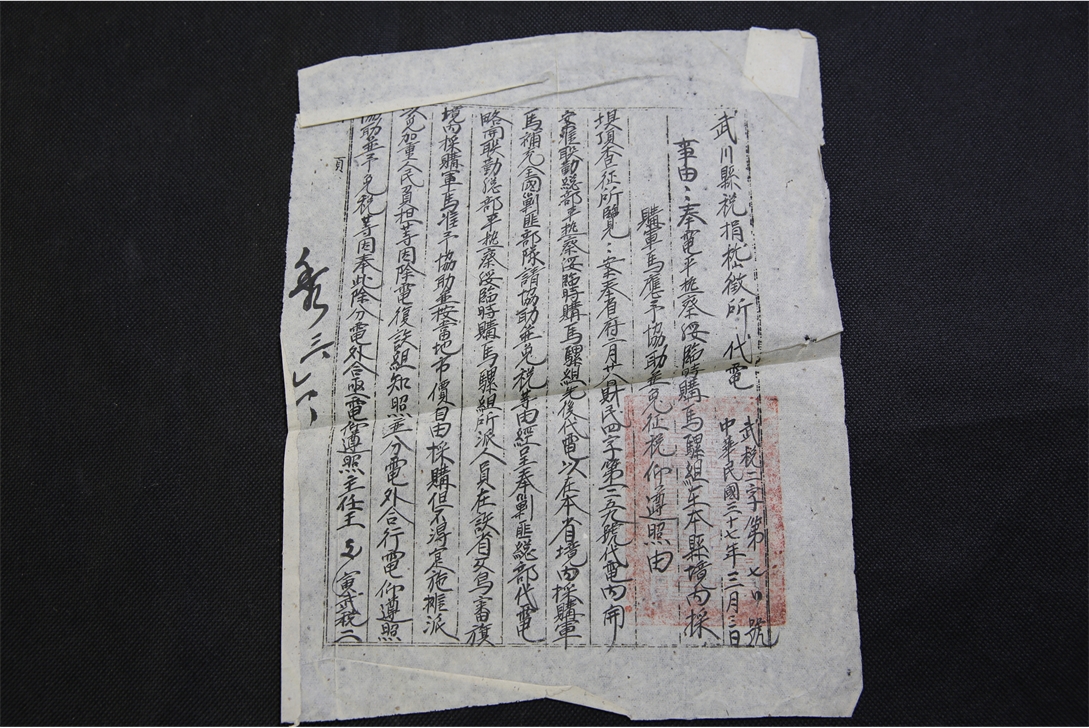 武川縣稅捐稽徵所代電
武稅二字第七〇號
中華民國三十七年三月三日
事由：奉電平桃察綏臨時購馬騾組在本縣境內採
購軍馬應予協助並免征稅仰遵照由
壩頂查征所覽：案奉省府二月廿八財民四字第一二五九號代電內開
案准聯勤總部平桃察綏臨時購馬騾組先後代電以在本省境內採購軍
馬補充全國剿匪部隊請協助並免稅等由經呈奉剿匪總部代電
略開聯勤總部平桃察綏臨時購馬騾組所派人員在該省及烏審旗
境內採購軍馬准予協助並按當地市價自由採購但不得實施攤派
以免加重人民負担等因除電復該組知照並分電外合行電仰遵照
協助並予免稅等因奉此除分電外合亟電仰遵照主任王 寅武稅二
頁
三